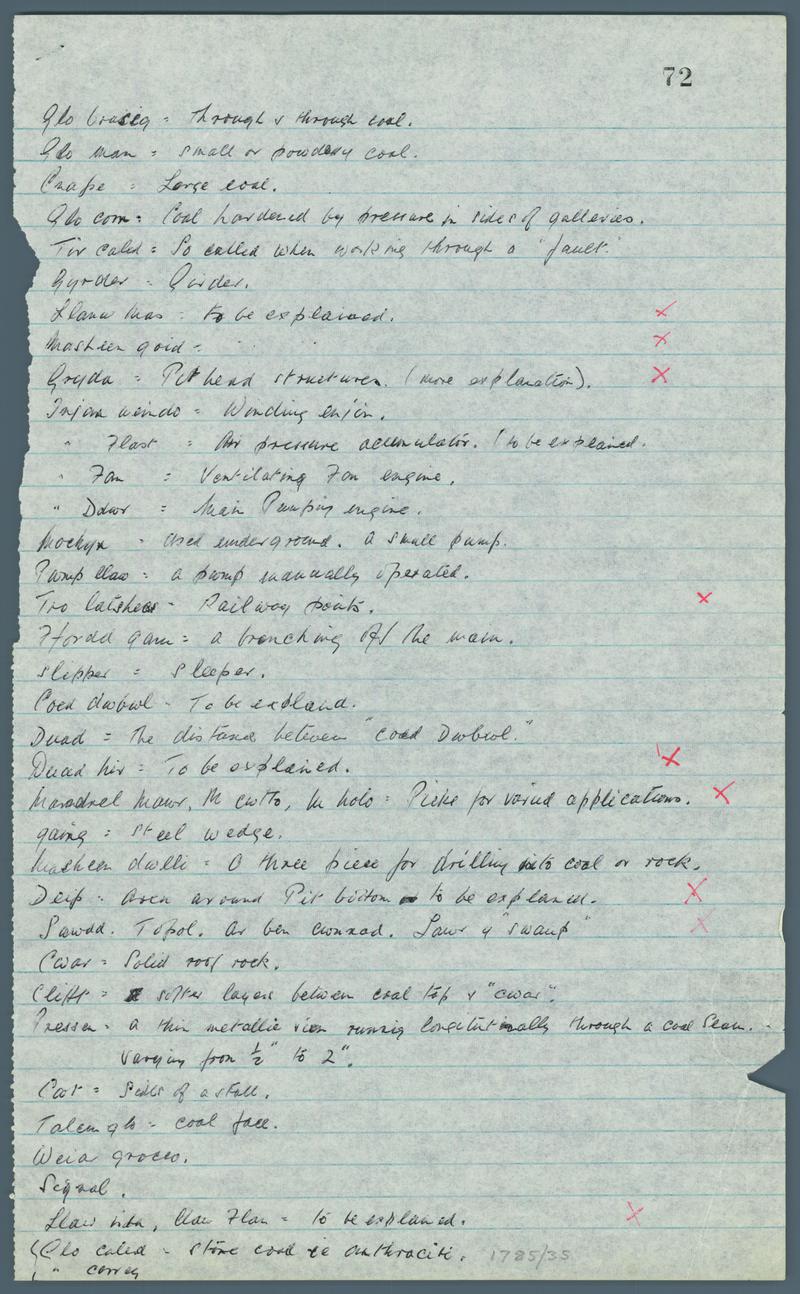 72
Glo brasig = Through & through coal.
Glo man = Small or powdery coal.
Cnape = Large coal.
Glo corn = Coal hardened by pressure in sides of galleries.
Tir caled = So called when working through a "fault".
Gyrder = Girder.
Llanw mas = to be explained. x
Masheen goid = " " x
Gryda = Pit head structures. (more explanation). x
Injan weindo = Winding enjin.
" Flast = Air pressure accumulator. (to be explained.
" Fan = Ventilating Fan engine.
" Ddwr = Main Pumping engine.
Mochyn = Used underground. A small pump.
Pwmp llaw = a pump manually operated.
Tro latshes = Railway points. x
Ffordd gam = a branching off the main.
Slipper = Sleeper.
Coed dwbwl = To be expland.
Duad = The distance between "coed Dwbwl."
Duad hir = To be explained. x
Mandrel Mawr, M cwto, M holo = Picks for varied applications. x
gaing = steel wedge.
Masheen dwlli = A three piece for drilling into coal or rock.
Deip = Area around Pit bottom to be explained. x
Sawdd. Topol. Ar ben Lawr y "swamp" x
Cwar = Solid roof rock.
Clifft = softer layers between coal top & "cwar".
Pressen = a thin metallic vien runnig longitutinally through a coal seam.
Varying from ½" to 2".
Cot = Sides of a stall.
Talcen glo = coal face.
Weiar groes.
Signal.
Llaw Flan = to be explained. x
(Glo caled = stone coal ie anthracite. 1785/35
( " carreg